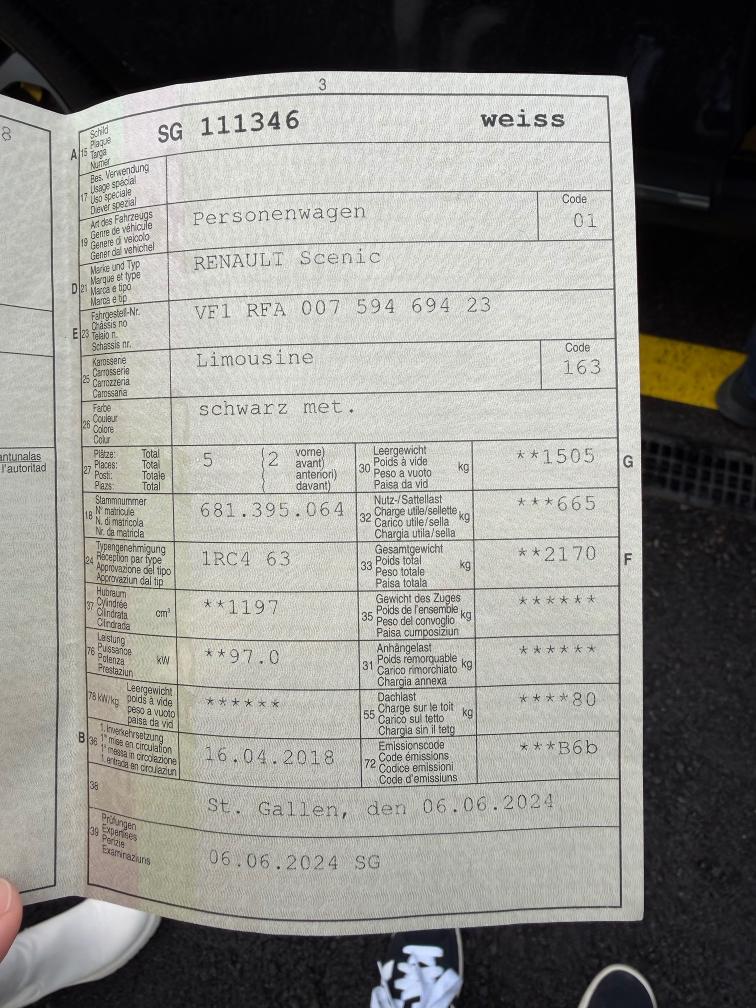 3
8
antunalas
l'autoritad
A 15 Schild
Plaque
Targa
Numer
SG 111346 weiss
17 Bes. Verwendung
Usage spécial
Uso speciale
Diever spezial
19 Art des Fahrzeugs
Genre de véhicule
Genere di veicolo
Gener dal vehichel
Personenwagen
Code
01
D 21 Marke und Typ
Marque et type
Marca e tipo
Marca e tip
RENAULT Scenic
E 23 Fahrgestell-Nr.
Châssis no
Telaio n.
Schassis nr.
VF1 RFA 007 594 694 23
25 Karosserie
Carrosserie
Carrozzeria
Carossaria
Limousine
Code
163
26 Farbe
Couleur
Colore
Colur
schwarz met.
27 Plätze: Total
Places: Total
Posti: Totale
Plazs: Total
5 (2 vorne)
avant)
anteriori)
davant)
30 Leergewicht
Poids à vide
Peso a vuoto
Paisa da vid
kg
**1505
G
18 Stammnummer
N° matricule
N. di matricola
Nr. da matricla
681.395.064
32 Nutz-/Sattellast
Charge utile/sellette
Carico utile/sella
Chargia utila/sella
kg
***665
24 Typengenehmigung
Réception par type
Approvazione del tipo
Approvaziun dal tip
1RC4 63
33 Gesamtgewicht
Poids total
Peso totale
Paisa totala
kg
**2170
F
37 Hubraum
Cylindrée
Cilindrata
Cilindrada
cm³
**1197
35 Gewicht des Zuges
Poids de l'ensemble
Peso del convoglio
Paisa cumposiziun
kg
******
76 Leistung
Puissance
Potenza
Prestaziun
kW
**97.0
31 Anhängelast
Poids remorquable
Carico rimorchiato
Chargia annexa
kg
******
78 kW/kg Leergewicht
poids à vide
peso a vuoto
paisa da vid
******
55 Dachlast
Charge sur le toit
Carico sul tetto
Chargia sin il tetg
kg
****80
B 36 1. Inverkehrsetzung
1re mise en circulation
1a messa in circolazione
1. entrada en circulaziun
16.04.2018
72 Emissionscode
Code émissions
Codice emissioni
Code d'emissiuns
***B6b
38
St. Gallen, den 06.06.2024
39 Prüfungen
Expertises
Perizie
Examinaziuns
06.06.2024 SG